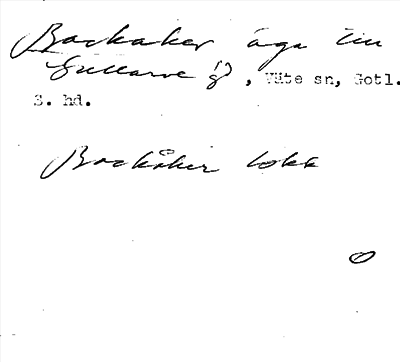 Backaker äga till
Gullarve g, Väte sn, Gotl.
S. hd.
Backåker lokk